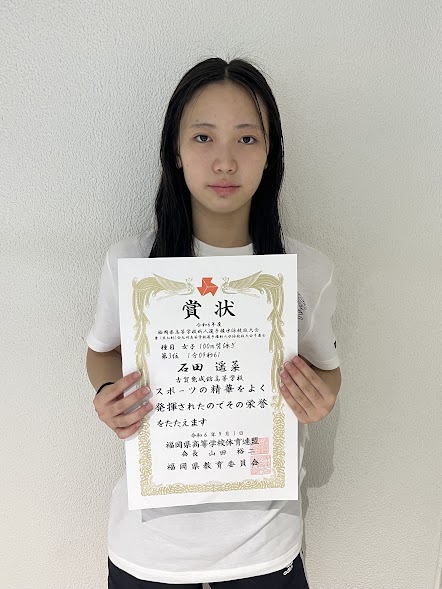 賞状
令和6年度
福岡県高等学校新人選手権水泳競技大会
種目 女子 100m背泳ぎ
第3位 1分09秒61
石田 遥菜
古賀竟成館高等学校
スポーツの精華をよく
発揮されたのでその栄誉
をたたえます
令和6年9月1日
福岡県高等学校体育連盟
会長 山田 裕二
福岡県教育委員会